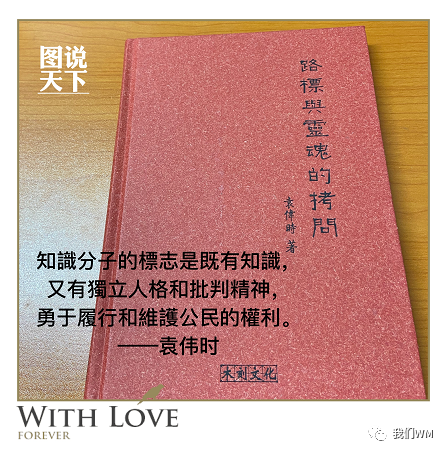 图说
天下
路標與靈魂的拷問
袁偉時 著
知識分子的標志是既有知識，
又有獨立人格和批判精神，
勇于履行和維護公民的權利。
——袁伟时
木刻文化
WITH LOVE
FOREVER
我们WM